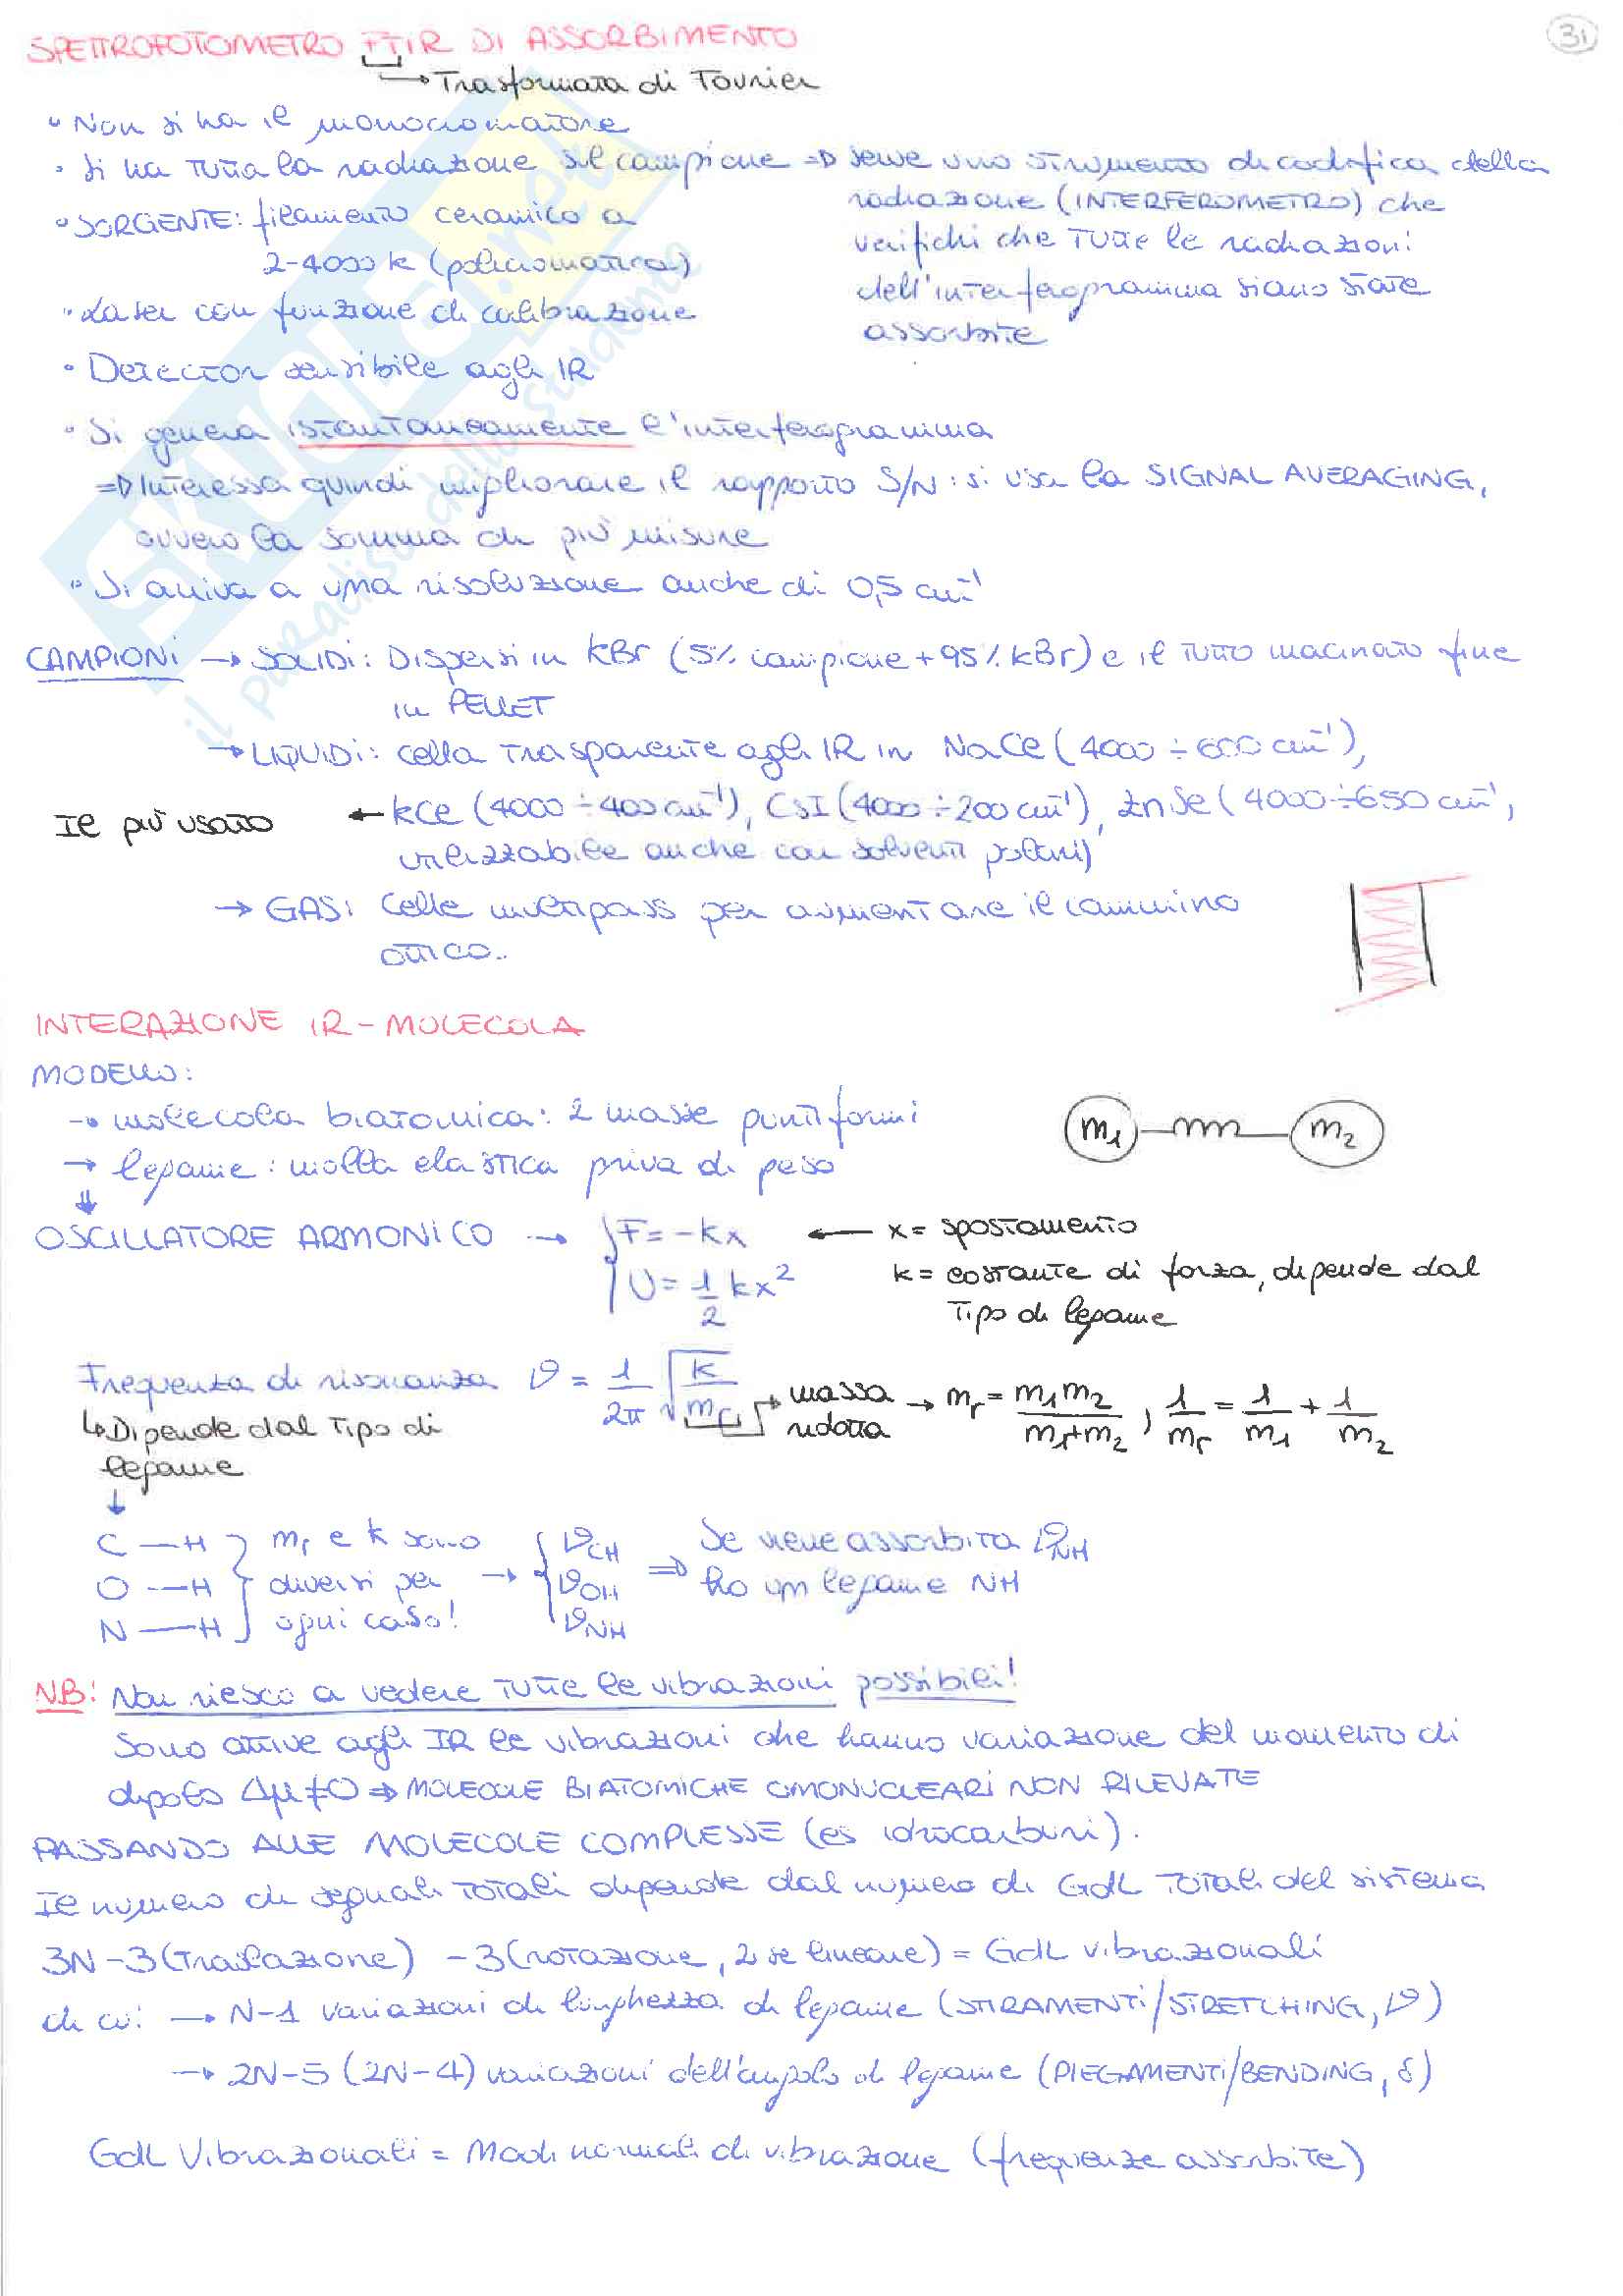 31
SPETTROFOTOMETRO FTIR DI ASSORBIMENTO
→ Trasformata di Fourier
• Non si ha il monocromatore
• Si ha tutta la radiazione sul campione ⇒ serve uno strumento di codifica della
radiazione (INTERFEROMETRO) che
verifichi che tutte le radiazioni
dell'interferogramma siano state
assorbite
• SORGENTE: filamento ceramico a
2-4000 k (policromatica)
• Laser con funzione di calibrazione
• Detector sensibile agli IR
• Si genera istantaneamente l'interferogramma
⇒ Interessa quindi migliorare il rapporto S/N: si usa la SIGNAL AVERAGING,
ovvero la somma di più misure
• Si arriva a una risoluzione anche di 0,5 cm⁻¹
CAMPIONI → SOLIDI: Dispersi in KBr (5% campione + 95% KBr) e il tutto macinato fine
in PELLET
→ LIQUIDI: cella trasparente agli IR in NaCl (4000 ÷ 600 cm⁻¹),
Il più usato ← KCl (4000 ÷ 400 cm⁻¹), CSI (4000 ÷ 200 cm⁻¹), ZnSe (4000 ÷ 650 cm⁻¹,
utilizzabile anche con solventi polari)
→ GAS: Celle multipass per aumentare il cammino
ottico..
INTERAZIONE IR - MOLECOLA
MODELLO:
→ molecola biatomica: 2 masse puntiformi
m₁ m₂
→ legame: molla elastica priva di peso
⇓
OSCILLATORE ARMONICO → { F = -kx ← x = spostamento
U = 1/2 kx² k = costante di forza, dipende dal
tipo di legame
Frequenza di risonanza ϑ = 1/2π √(k/mr) → massa ridotta → mr = m₁m₂/(m₁+m₂), 1/mr = 1/m₁ + 1/m₂
↳ Dipende dal tipo di
legame
↓
C—H } mr e k sono { ϑCH Se viene assorbita ϑNH
O—H } diversi per → { ϑOH ⇒ ho un legame NH
N—H } ogni caso! { ϑNH
N.B: Non riesco a vedere tutte le vibrazioni possibili!
Sono attive agli IR le vibrazioni che hanno variazione del momento di
dipolo Δμ≠0 ⇒ MOLECOLE BIATOMICHE OMONUCLEARI NON RILEVATE
PASSANDO ALLE MOLECOLE COMPLESSE (es idrocarburi).
Il numero di segnali totali dipende dal numero di GdL totali del sistema
3N-3 (traslazione) -3 (rotazione, 2 se lineare) = GdL vibrazionali
di cui → N-1 variazioni di lunghezza di legame (STIRAMENTI/STRETCHING, ϑ)
→ 2N-5 (2N-4) variazioni dell'angolo di legame (PIEGAMENTI/BENDING, δ)
GdL Vibrazionali = Modi normali di vibrazione (frequenze assorbite)
SKUOLA.net
il paradiso dello studente